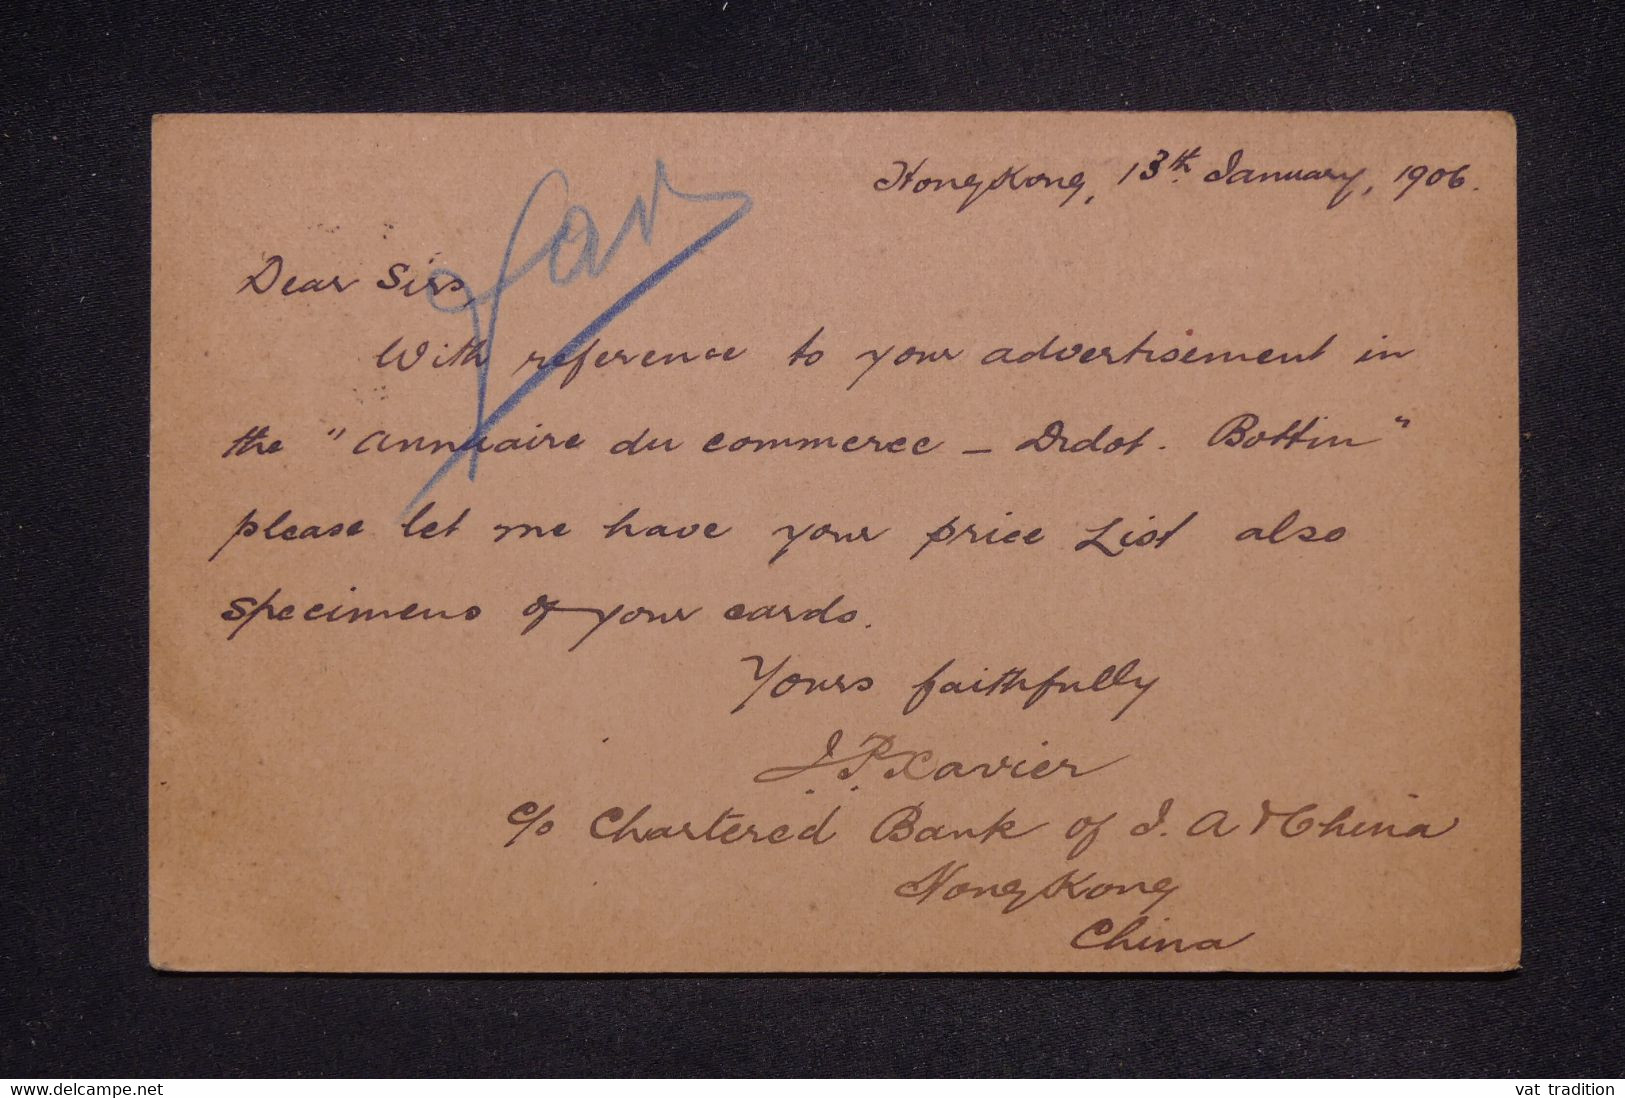 HongKong, 13th January, 1906.
Dear Sirs,
With reference to your advertisement in
the "Annuaire du commerce – Didot. Bottin"
please let me have your price List also
specimens of your cards.
Yours faithfully
J. P. Xavier
c/o Chartered Bank of I. A & China
HongKong
China
www.delcampe.net
vat tradition